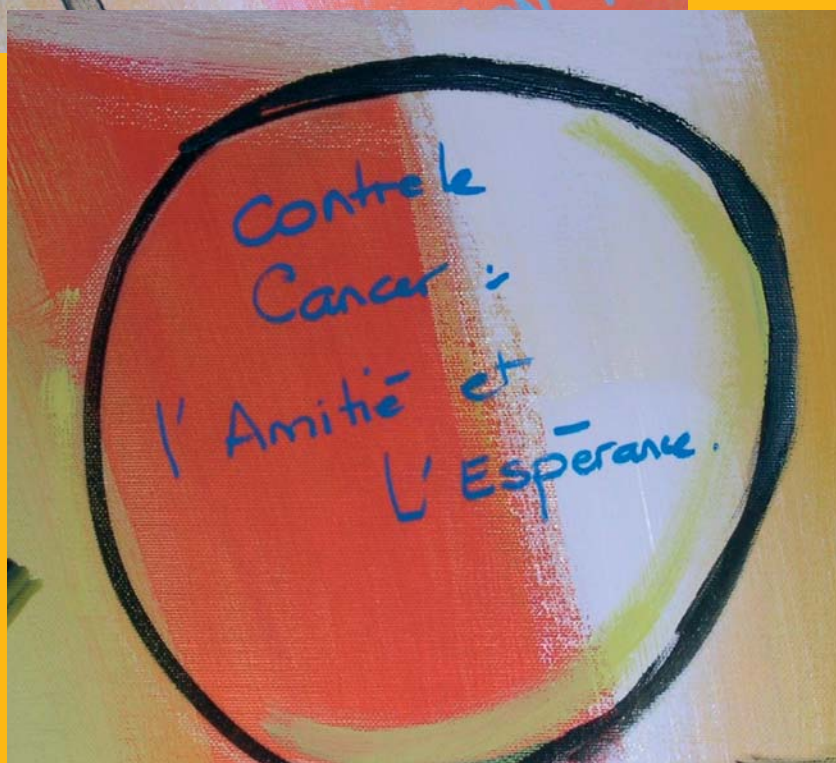 Contre le
Cancer :
l'Amitié et
L'Espérance.